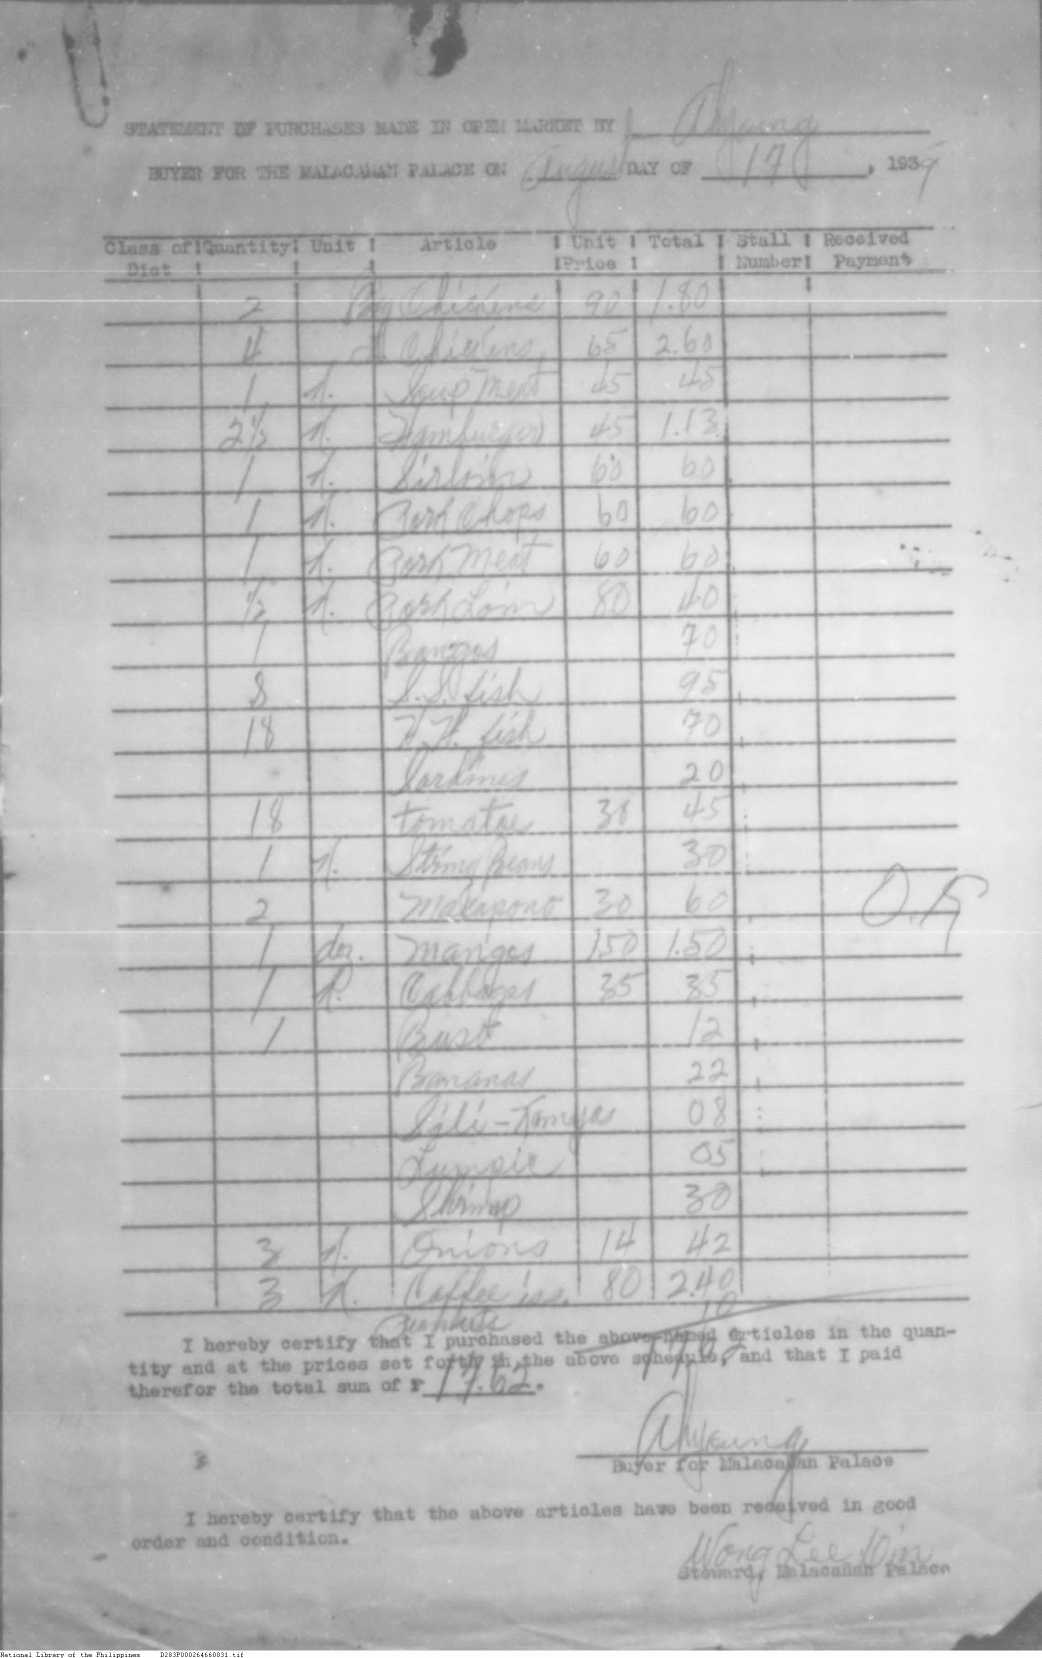 STATEMENT OF PURCHASES MADE IN OPEN MARKET BY Ahyoung
BUYER FOR THE MALACAÑAN PALACE ON August DAY OF 17, 1939
Class of Diet Quantity Unit Article Unit Price Total Stall Number Received Payment
2 Big Chickens 90 1.80
4 Chickens 65 2.60
1 K. Soup Meat 45 45
2½ K. Hamburger 45 1.13
1 K. Sirloin 60 60
1 K. Pork Chops 60 60
1 K. Pork Meat 60 60
½ K. Pork Loin 80 40
1 Bangos 70
8 S.S. fish 95
18 H.H. fish 70
Sardines 20
18 Tomatoe 45
1 K. String Beans 30
2 Makapono 30 60
O.K
1 doz. Mangos 150 1.50
1 K. Cabbages 35 35
1 12
Bananas 22
Sili - Kamyas 08
Lumpie 05
Shrimp 30
3 K. Onions 14 42
3 K. Coffee 80 2.40
Peanuts 10
I hereby certify that I purchased the above-named articles in the quan-
tity and at the prices set forth in the above schedule, and that I paid
therefor the total sum of ₱ 17.62.
Ahyoung
Buyer for Malacañan Palace
I hereby certify that the above articles have been received in good
order and condition.
Wong Lee Win
Steward, Malacañan Palace
National Library of the Philippines D283P000264660831.tif